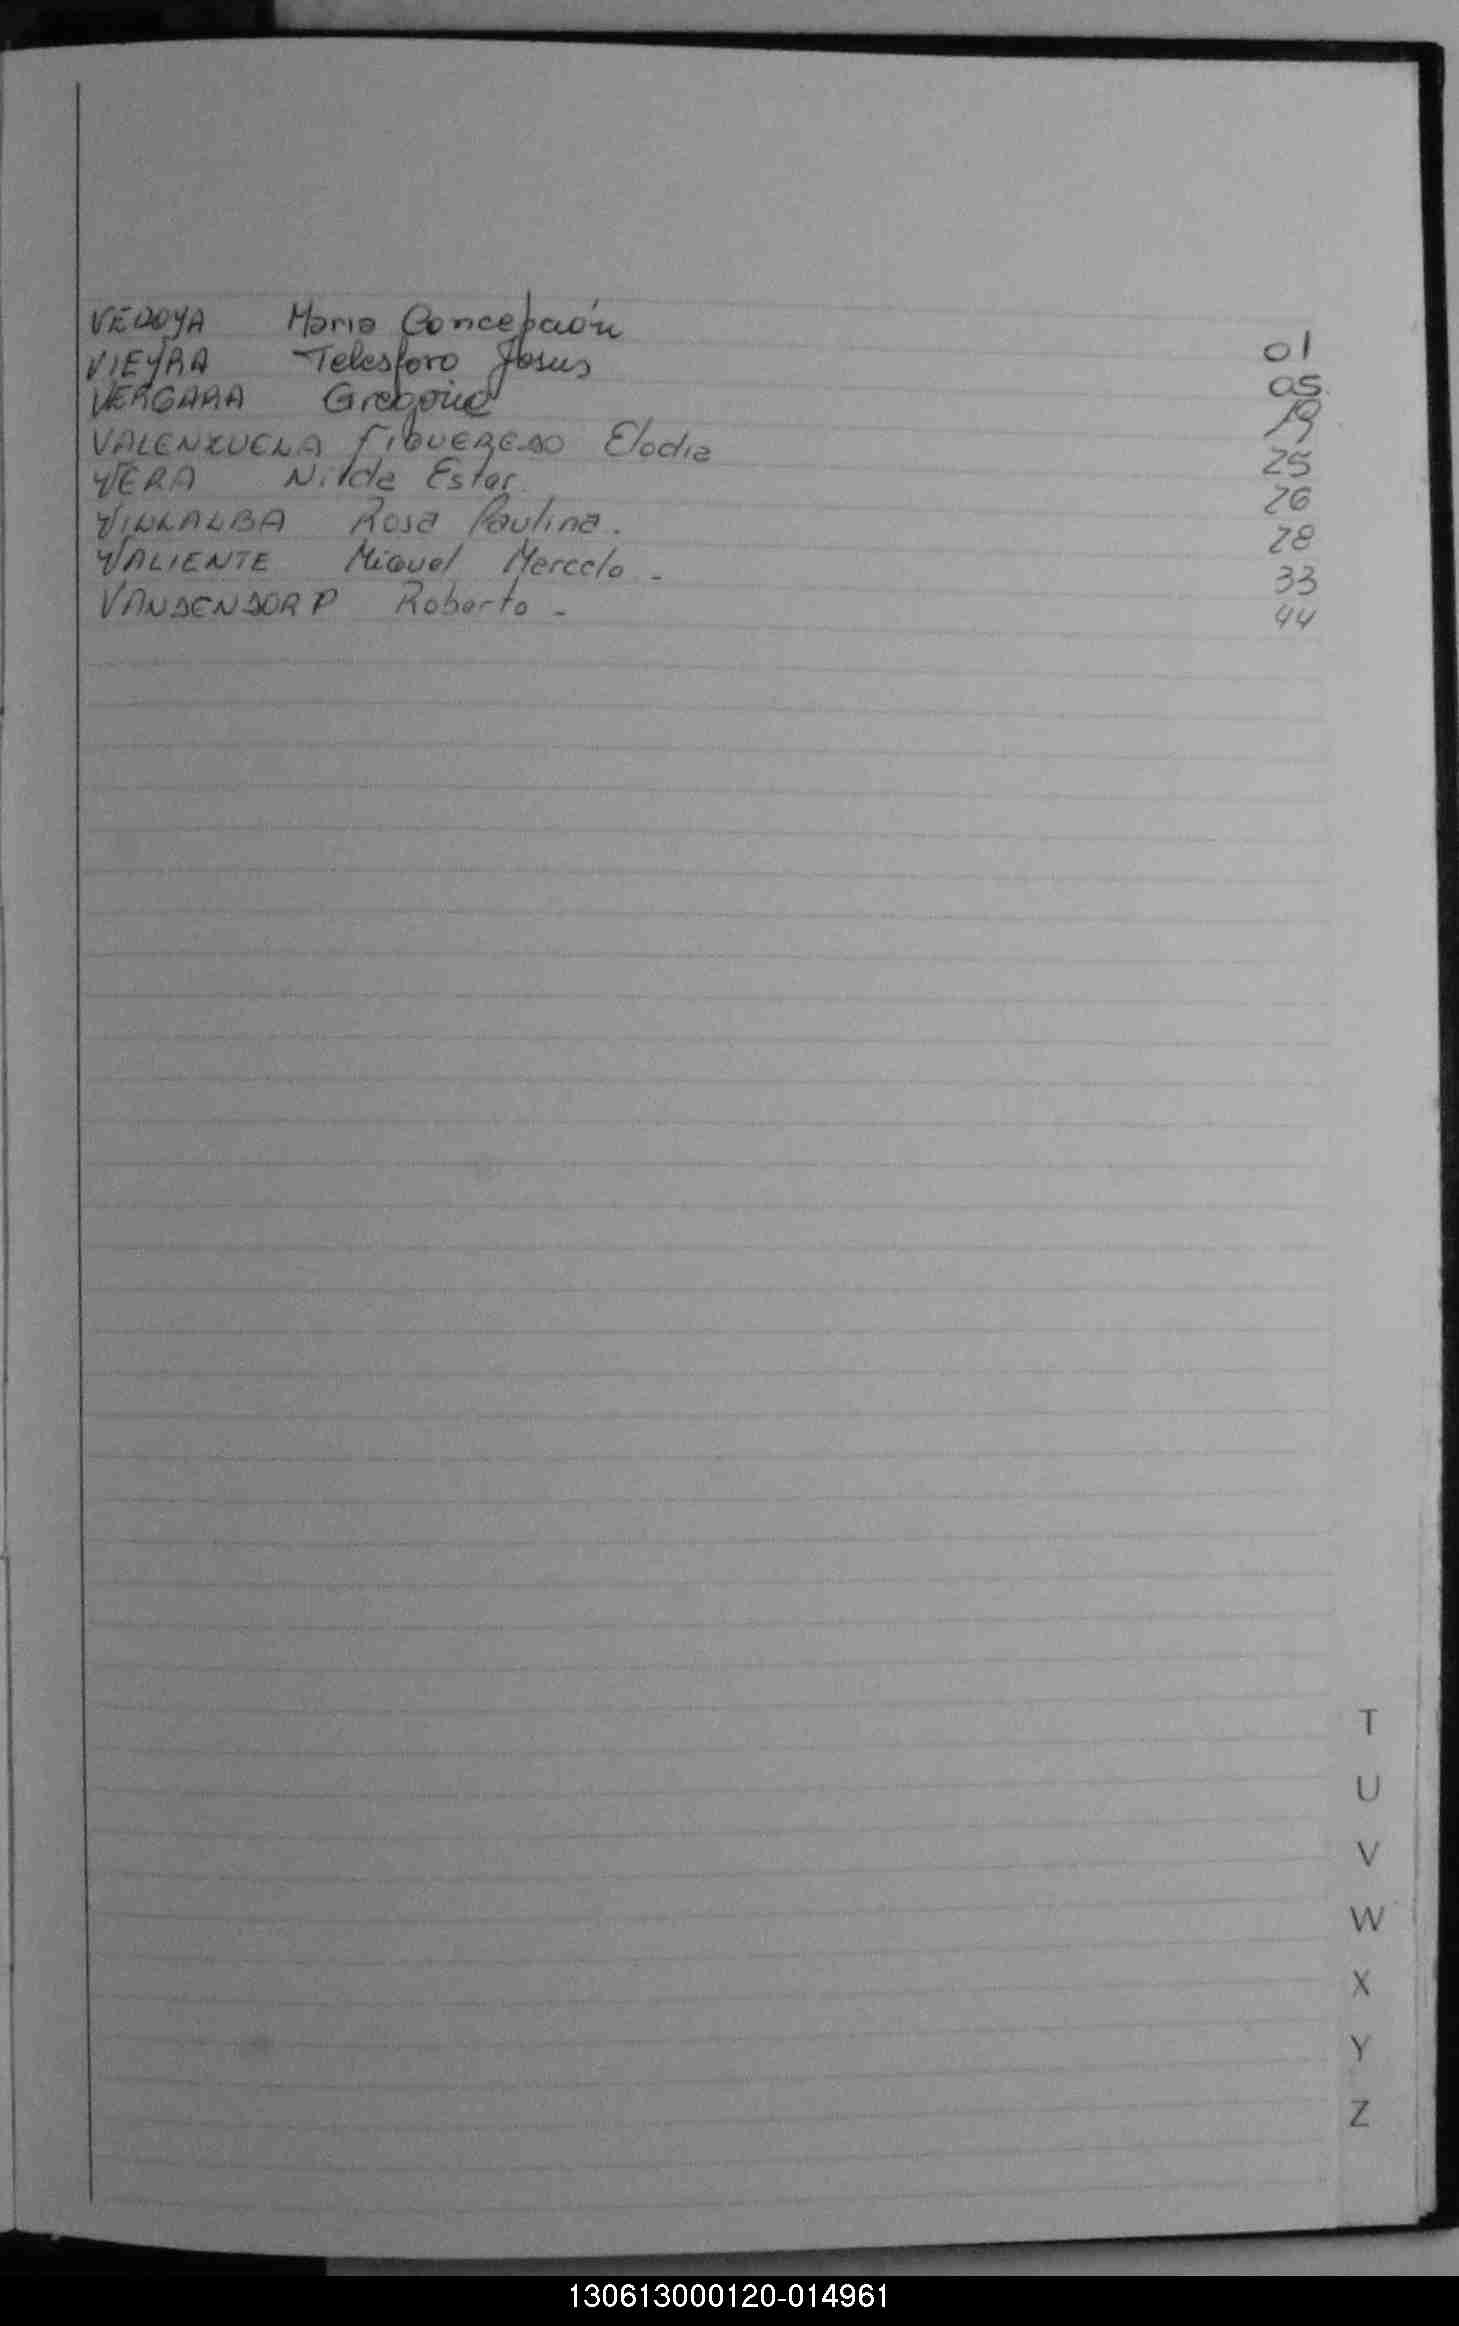 VEDOYA Maria Concepción 01
VIEYRA Telesforo Jesus 05
VERGARA Gregoria 19
VALENZUELA FIGUEREDO Elodia 25
VERA Nilda Ester 26
VILLALBA Rosa Paulina. 28
VALIENTE Miguel Marcelo - 33
VANDENDORP Roberto - 44
T
U
V
W
X
Y
Z
130613000120-014961